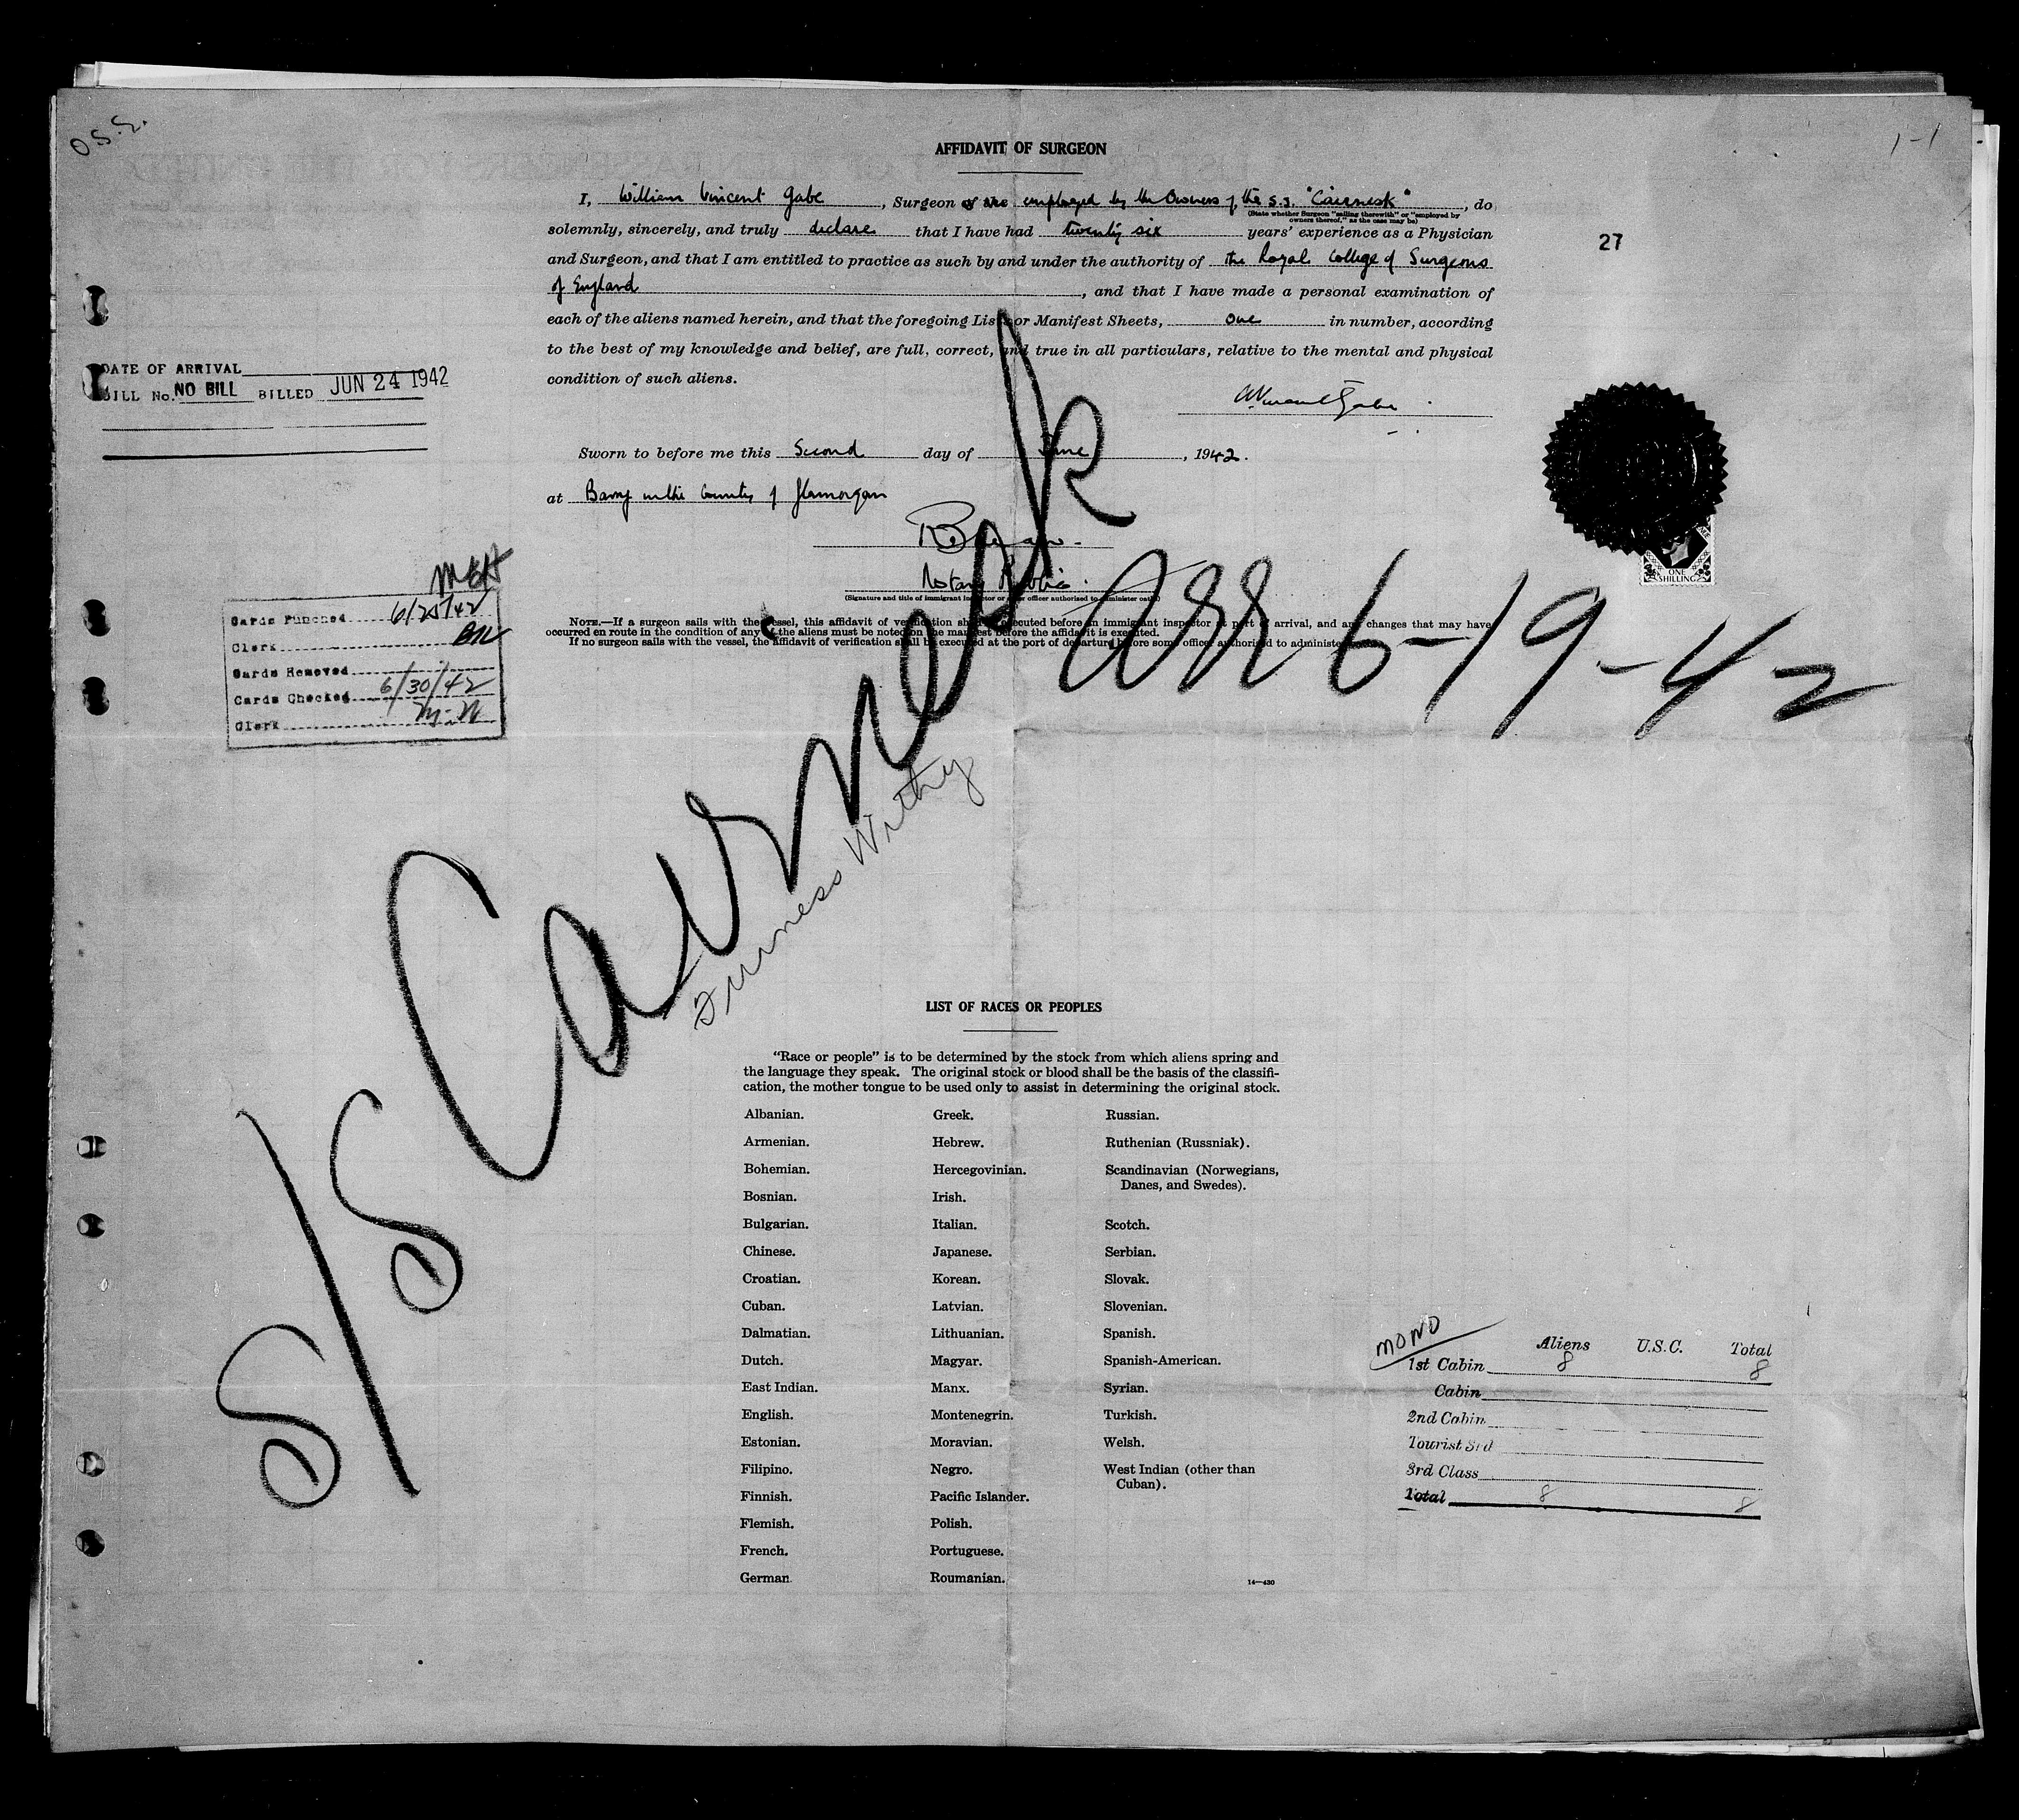 O.S.S.
1-1
AFFIDAVIT OF SURGEON
I, William Vincent Gabe, Surgeon employed by the Owners of the S.S. "Cairnesk", do
(State whether Surgeon "sailing therewith" or "employed by
owners thereof," as the case may be)
solemnly, sincerely, and truly declare that I have had twenty six years' experience as a Physician
27
and Surgeon, and that I am entitled to practice as such by and under the authority of the Royal College of Surgeons
of England, and that I have made a personal examination of
each of the aliens named herein, and that the foregoing Lists or Manifest Sheets, one in number, according
to the best of my knowledge and belief, are full, correct, and true in all particulars, relative to the mental and physical
condition of such aliens.
DATE OF ARRIVAL
BILL No. NO BILL BILLED JUN 24 1942
Sworn to before me this Second day of June, 1942.
at Barry in the County of Glamorgan
Notary Public.
(Signature and title of immigrant inspector or other officer authorised to administer oaths)
ONE
SHILLING
NOTE.—If a surgeon sails with the vessel, this affidavit of verification shall be executed before an immigrant inspector at port of arrival, and any changes that may have
occurred en route in the condition of any of the aliens must be noted on the manifest before the affidavit is executed.
If no surgeon sails with the vessel, the affidavit of verification shall be executed at the port of departure before some officer authorised to administer
Cards Punched 6/25/42
Clerk
Cards Removed
Cards Checked 6/30/42
Clerk M.N
S/S Cairnesk
arr 6-19-42
Furness Withy
LIST OF RACES OR PEOPLES
"Race or people" is to be determined by the stock from which aliens spring and
the language they speak. The original stock or blood shall be the basis of the classifi-
cation, the mother tongue to be used only to assist in determining the original stock.
Albanian.
Armenian.
Bohemian.
Bosnian.
Bulgarian.
Chinese.
Croatian.
Cuban.
Dalmatian.
Dutch.
East Indian.
English.
Estonian.
Filipino.
Finnish.
Flemish.
French.
German.
Greek.
Hebrew.
Hercegovinian.
Irish.
Italian.
Japanese.
Korean.
Latvian.
Lithuanian.
Magyar.
Manx.
Montenegrin.
Moravian.
Negro.
Pacific Islander.
Polish.
Portuguese.
Roumanian.
Russian.
Ruthenian (Russniak).
Scandinavian (Norwegians,
Danes, and Swedes).
Scotch.
Serbian.
Slovak.
Slovenian.
Spanish.
Spanish-American.
Syrian.
Turkish.
Welsh.
West Indian (other than
Cuban).
14—430
MONO
Aliens U.S.C. Total
1st Cabin 8 8
Cabin
2nd Cabin
Tourist 3rd
3rd Class
Total 8 8